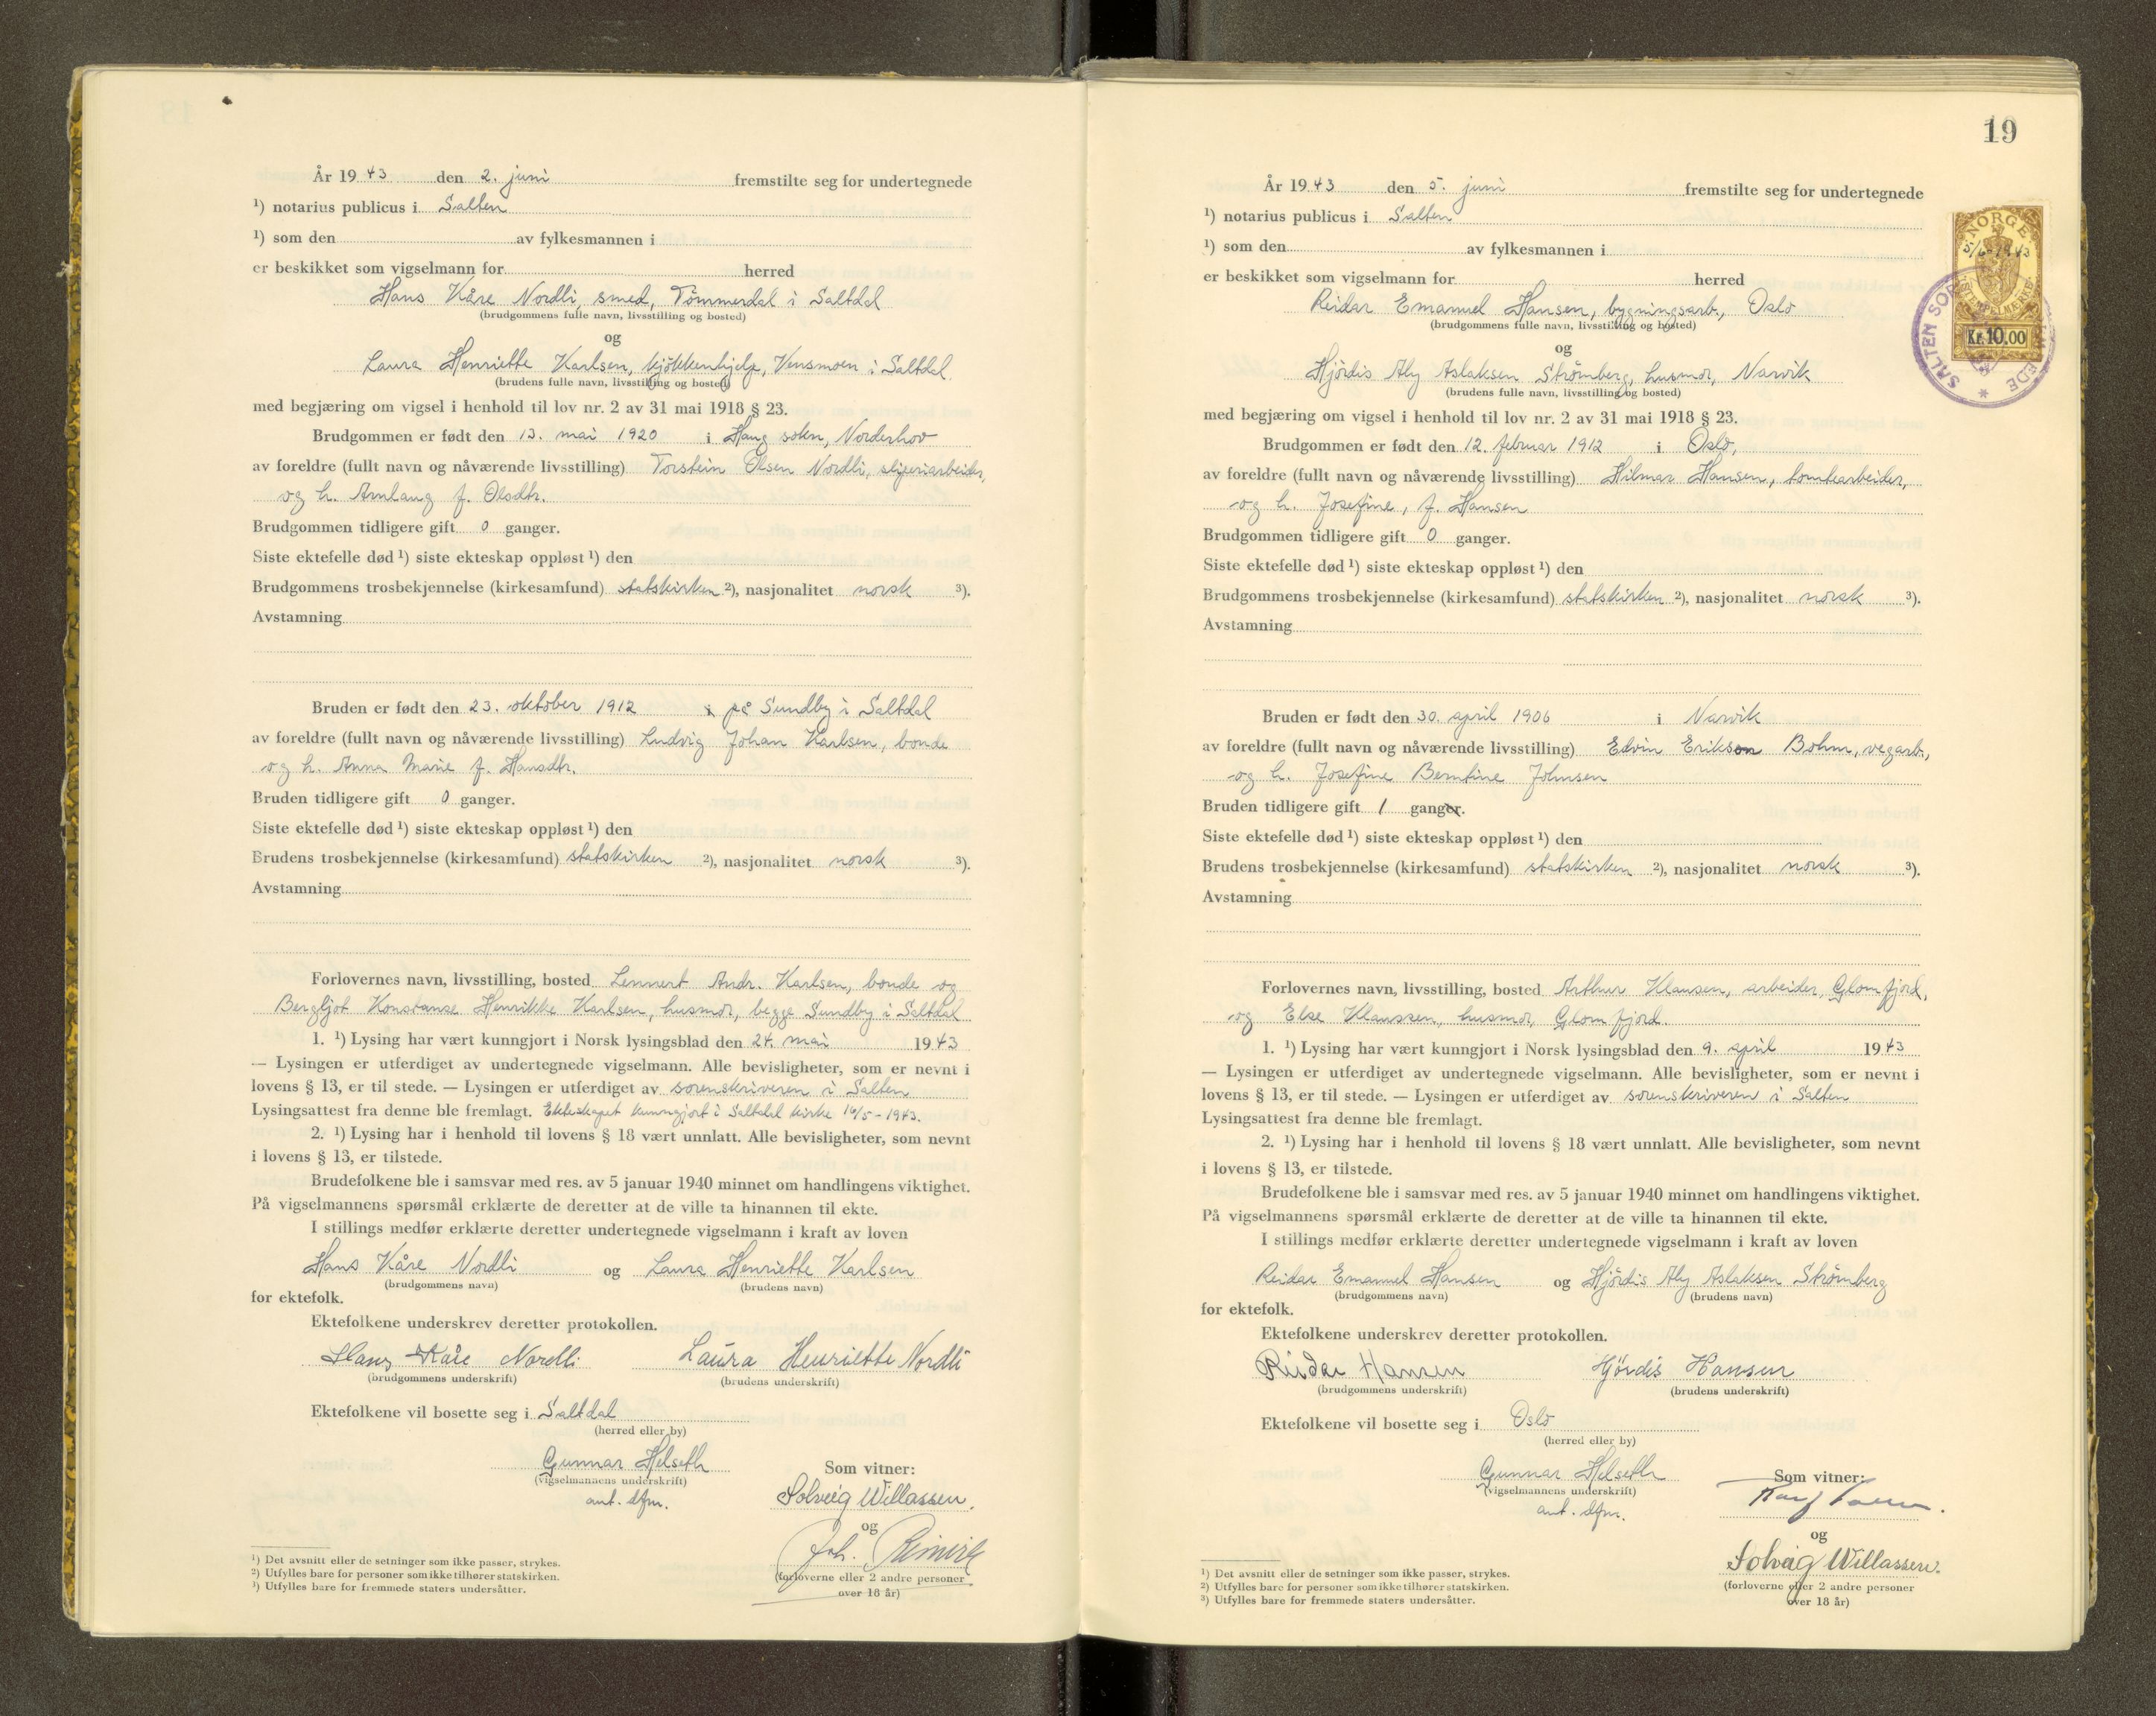 År 1943 den 2. juni fremstilte seg for undertegnede
¹) notarius publicus i Salten
¹) som den av fylkesmannen i
er beskikket som vigselmann for herred
Hans Kåre Nordli, smed, Tömmerdal i Saltdal
(brudgommens fulle navn, livsstilling og bosted)
og
Laura Henriette Karlsen, kjökkenhjelp, Vensmoen i Saltdal.
(brudens fulle navn, livsstilling og bosted)
med begjæring om vigsel i henhold til lov nr. 2 av 31 mai 1918 § 23.
Brudgommen er født den 13. mai 1920 i Haug sokn, Norderhov
av foreldre (fullt navn og nåværende livsstilling) Torstein Olsen Nordli, sliperiarbeider,
og h. Arnlaug f. Olsdtr.
Brudgommen tidligere gift 0 ganger.
Siste ektefelle død ¹) siste ekteskap oppløst ¹) den
Brudgommens trosbekjennelse (kirkesamfund) statskirken ²), nasjonalitet norsk ³).
Avstamning
Bruden er født den 23. oktober 1912 i på Sundby i Saltdal
av foreldre (fullt navn og nåværende livsstilling) Ludvig Johan Karlsen, bonde
og h. Anna Marie f. Hansdtr.
Bruden tidligere gift 0 ganger.
Siste ektefelle død ¹) siste ekteskap oppløst ¹) den
Brudens trosbekjennelse (kirkesamfund) statskirken ²), nasjonalitet norsk ³).
Avstamning
Forlovernes navn, livsstilling, bosted Lennert Andr. Karlsen, bonde og
Bergljot Konstanse Henrikke Karlsen, husmor, begge Sundby i Saltdal
1. ¹) Lysing har vært kunngjort i Norsk lysingsblad den 24. mai 1943
— Lysingen er utferdiget av undertegnede vigselmann. Alle bevisligheter, som er nevnt i
lovens § 13, er til stede. — Lysingen er utferdiget av sorenskriveren i Salten
Lysingsattest fra denne ble fremlagt. Ekteskapet kunngjort i Saltdal kirke 16/5-1943.
2. ¹) Lysing har i henhold til lovens § 18 vært unnlatt. Alle bevisligheter, som nevnt
i lovens § 13, er tilstede.
Brudefolkene ble i samsvar med res. av 5 januar 1940 minnet om handlingens viktighet.
På vigselmannens spørsmål erklærte de deretter at de ville ta hinannen til ekte.
I stillings medfør erklærte deretter undertegnede vigselmann i kraft av loven
Hans Kåre Nordli og Laura Henriette Karlsen
(brudgommens navn) (brudens navn)
for ektefolk.
Ektefolkene underskrev deretter protokollen.
Hans Kåre Nordli Laura Henriette Nordli
(brudgommens underskrift) (brudens underskrift)
Ektefolkene vil bosette seg i Saltdal
(herred eller by)
Gunnar Helseth Som vitner:
(vigselmannens underskrift)
aut. dfm. Solveig Willassen.
og
Joh.
(forloverne eller 2 andre personer
over 18 år)
¹) Det avsnitt eller de setninger som ikke passer, strykes.
²) Utfylles bare for personer som ikke tilhører statskirken.
³) Utfylles bare for fremmede staters undersåtter.
19
År 1943 den 5. juni fremstilte seg for undertegnede
¹) notarius publicus i Salten
¹) som den av fylkesmannen i
er beskikket som vigselmann for herred
NORGE
5/6-1943
STEMPELMERKE
Kr. 10.00
SALTEN SOR
EDE
Reidar Emanuel Hansen, bygningsarb., Oslo
(brudgommens fulle navn, livsstilling og bosted)
og
Hjördis Aly Aslaksen Strömberg, husmor, Narvik
(brudens fulle navn, livsstilling og bosted)
med begjæring om vigsel i henhold til lov nr. 2 av 31 mai 1918 § 23.
Brudgommen er født den 12. februar 1912 i Oslo,
av foreldre (fullt navn og nåværende livsstilling) Hilmar Hansen, tomtearbeider,
og h. Josefine, f. Hansen
Brudgommen tidligere gift 0 ganger.
Siste ektefelle død ¹) siste ekteskap oppløst ¹) den
Brudgommens trosbekjennelse (kirkesamfund) statskirken ²), nasjonalitet norsk ³).
Avstamning
Bruden er født den 30. april 1906 i Narvik
av foreldre (fullt navn og nåværende livsstilling) Edvin Erikson Bohm, vegarb.,
og h. Josefine Berntine Johnsen
Bruden tidligere gift 1 ganger.
Siste ektefelle død ¹) siste ekteskap oppløst ¹) den
Brudens trosbekjennelse (kirkesamfund) statskirken ²), nasjonalitet norsk ³).
Avstamning
Forlovernes navn, livsstilling, bosted Arthur Klausen, arbeider, Glomfjord,
og Else Klaussen, husmor, Glomfjord.
1. ¹) Lysing har vært kunngjort i Norsk lysingsblad den 9. april 1943
— Lysingen er utferdiget av undertegnede vigselmann. Alle bevisligheter, som er nevnt i
lovens § 13, er til stede. — Lysingen er utferdiget av sorenskriveren i Salten
Lysingsattest fra denne ble fremlagt.
2. ¹) Lysing har i henhold til lovens § 18 vært unnlatt. Alle bevisligheter, som nevnt
i lovens § 13, er tilstede.
Brudefolkene ble i samsvar med res. av 5 januar 1940 minnet om handlingens viktighet.
På vigselmannens spørsmål erklærte de deretter at de ville ta hinannen til ekte.
I stillings medfør erklærte deretter undertegnede vigselmann i kraft av loven
Reidar Emanuel Hansen og Hjördis Aly Aslaksen Strömberg
(brudgommens navn) (brudens navn)
for ektefolk.
Ektefolkene underskrev deretter protokollen.
Reidar Hansen Hjördis Hansen
(brudgommens underskrift) (brudens underskrift)
Ektefolkene vil bosette seg i Oslo
(herred eller by)
Gunnar Helseth Som vitner:
(vigselmannens underskrift)
aut. dfm.
og
Solveig Willassen.
(forloverne eller 2 andre personer
over 18 år)
¹) Det avsnitt eller de setninger som ikke passer, strykes.
²) Utfylles bare for personer som ikke tilhører statskirken.
³) Utfylles bare for fremmede staters undersåtter.